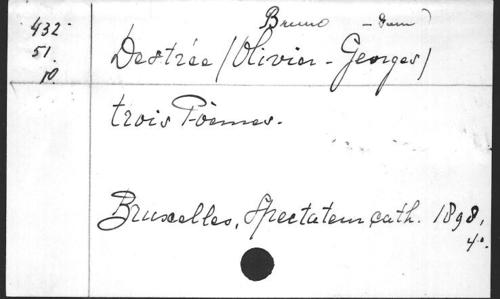 432
51.
10.
Bruno - dom)
Destrée (Olivier - Georges)
trois Poèmes.
Bruxelles, Spectateur cath. 1898,
4º.